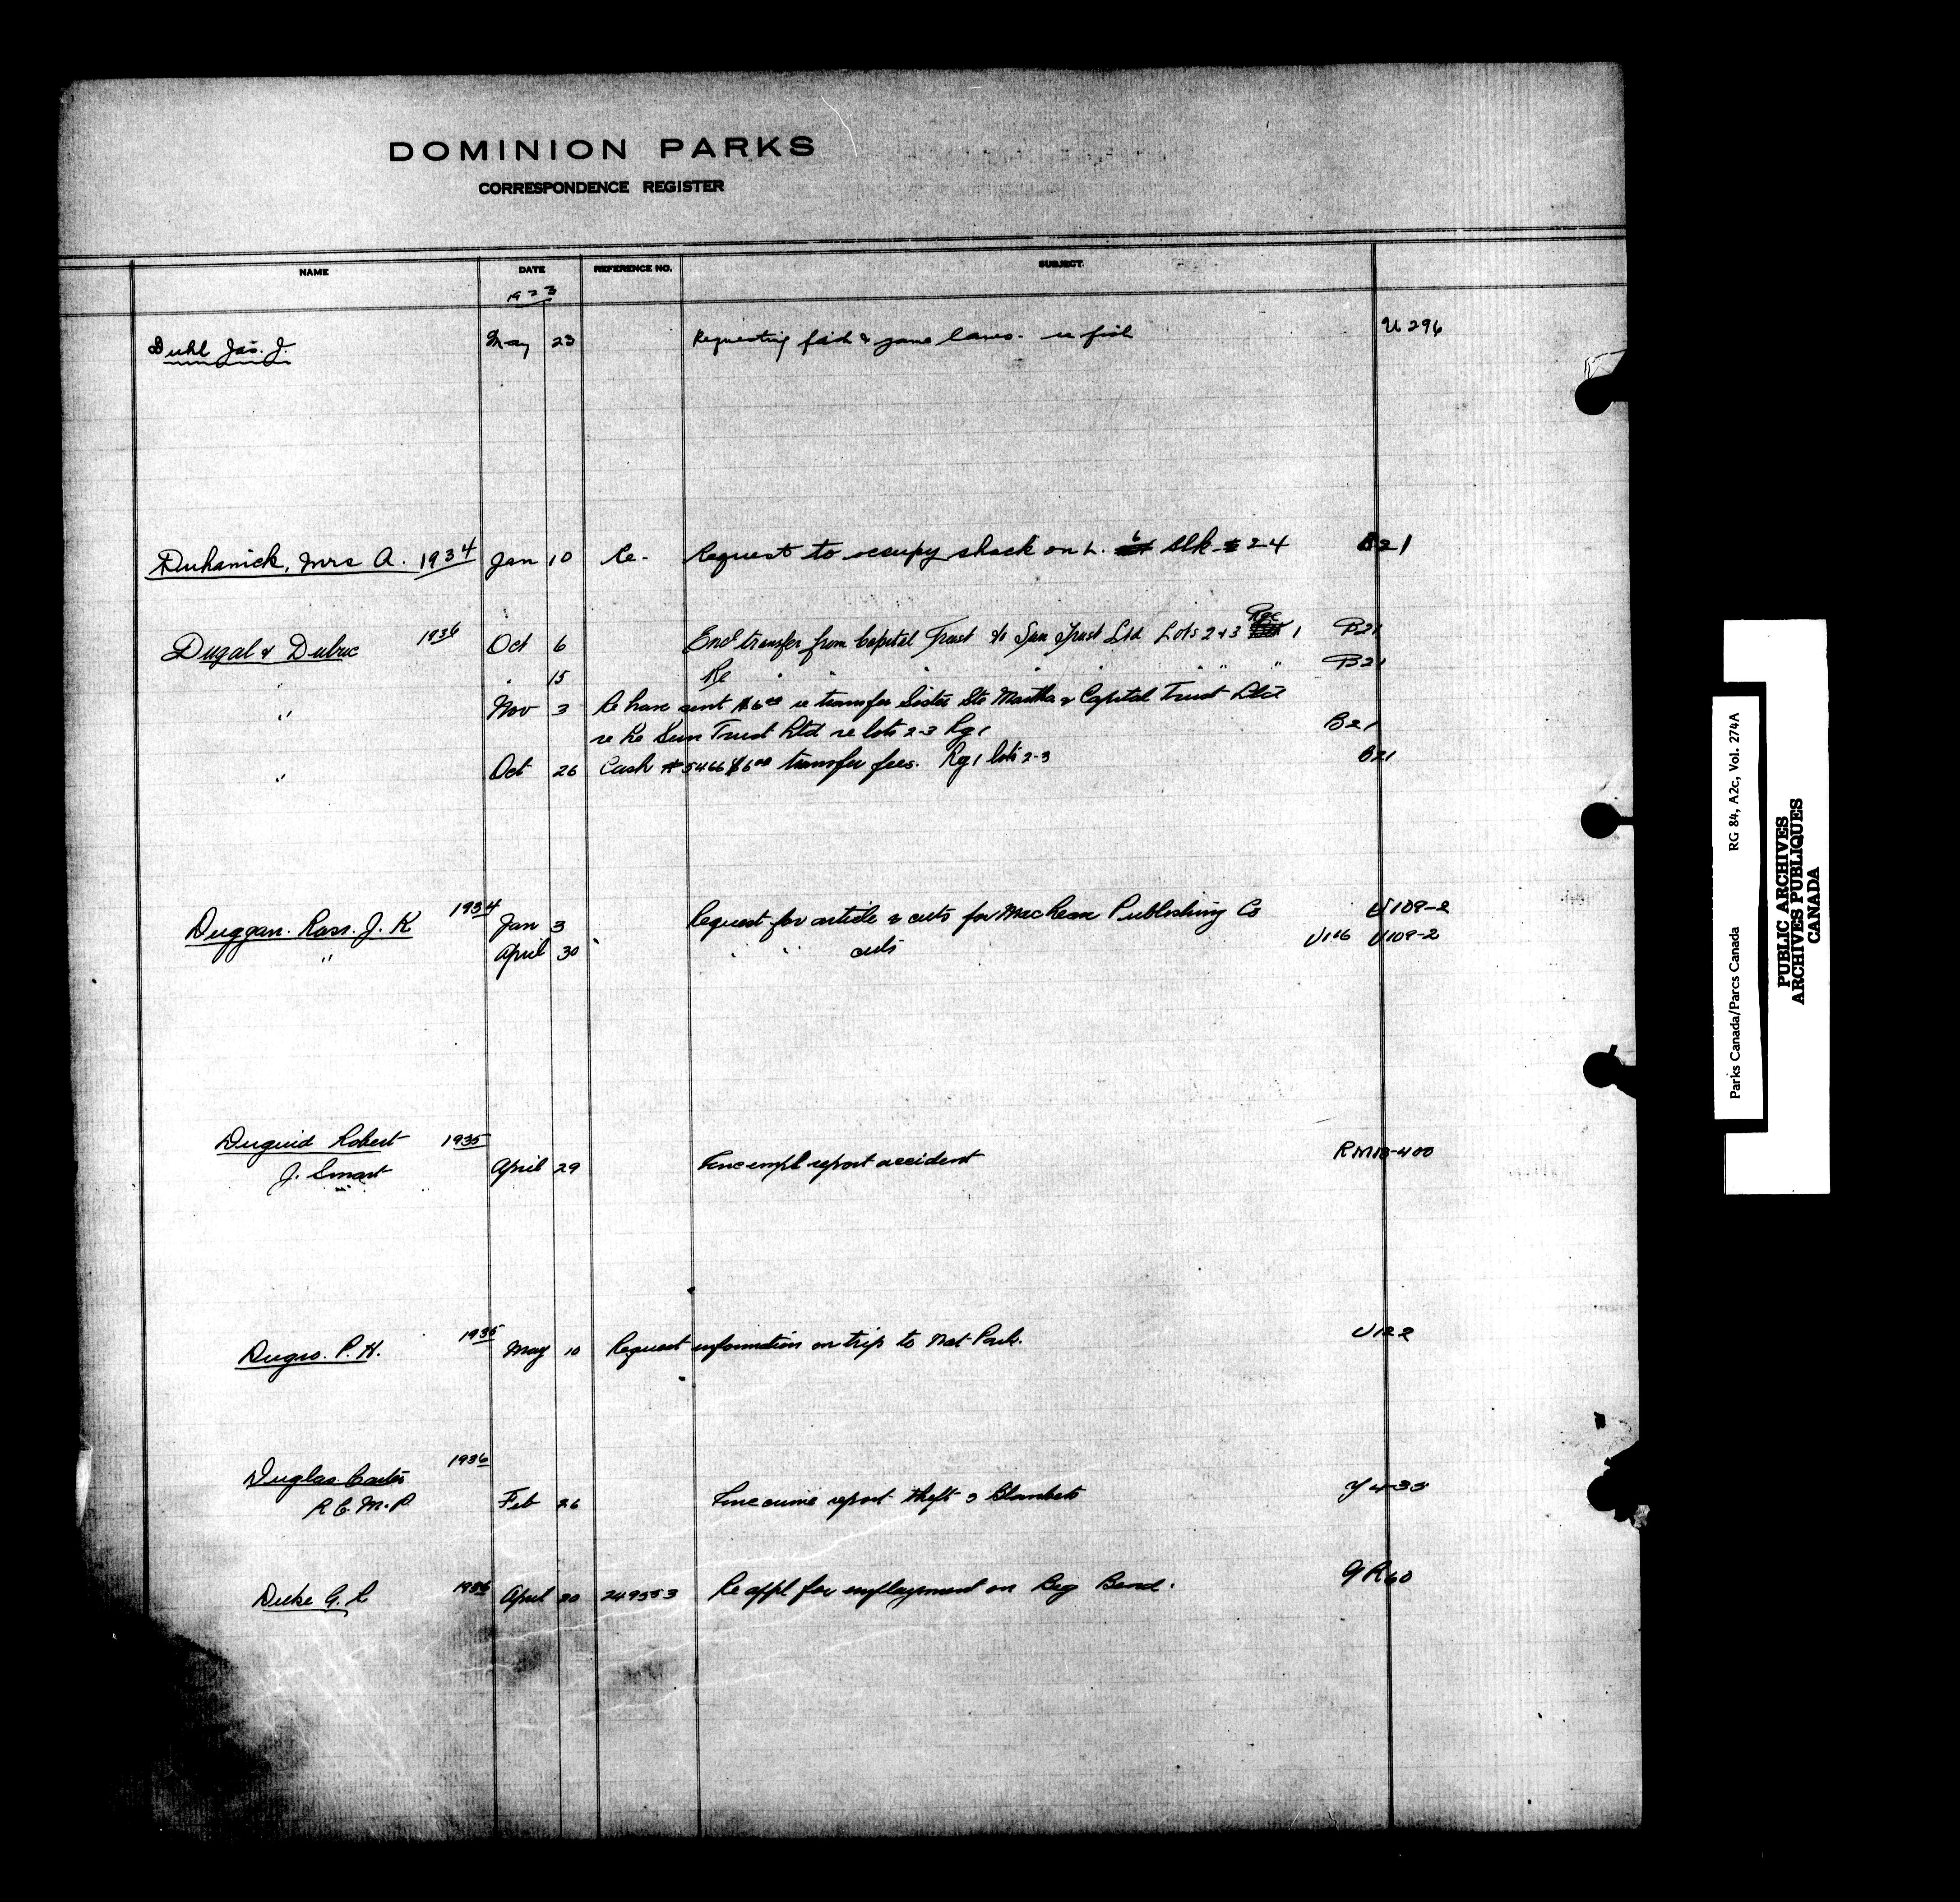 DOMINION PARKS
CORRESPONDENCE REGISTER
NAME DATE REFERENCE NO. SUBJECT
1923
Duhl Jas. J. May 23 Requesting fish & game laws. re fish U 296
Duhanick, Mrs A. 1934 Jan 10 Re- Request to occupy shack on L. 6 Blk 24 B21
Rge
Dugal & Dubuc 1936 Oct 6 Encl transfer from Capital Trust to Sun Trust Ltd Lots 2 & 3 1 B21
" " 15 Re " " " " " B21
" Nov 3 Re have sent $6.00 re transfer Sister Ste Martha & Capital Trust Ltd
re Re Sun Trust Ltd re lots 2-3 Rg 1 B21
" Oct 26 Cash # 5466 $6.00 transfer fees. Rg 1 lots 2-3 B21
Duggan. Ross. J. K 1934 Jan 3 Request for article & cuts for MacLean Publishing Co U109-2
" April 30 " " cuts U116 U109-2
Duguid Robert 1935
J. Smart April 29 empl report accident RM18-400
Dugro. P. H. 1935 May 10 Request information on trip to Nat Park. U122
Duglas 1936
R.C.M.P. Feb 26 crime report theft of Blankets Y4-33
Duke G. L 1936 April 20 249553 Re appl for employment on Big Bend. GR60
Parks Canada/Parcs Canada RG 84, A2c, Vol. 274A
PUBLIC ARCHIVES
ARCHIVES PUBLIQUES
CANADA